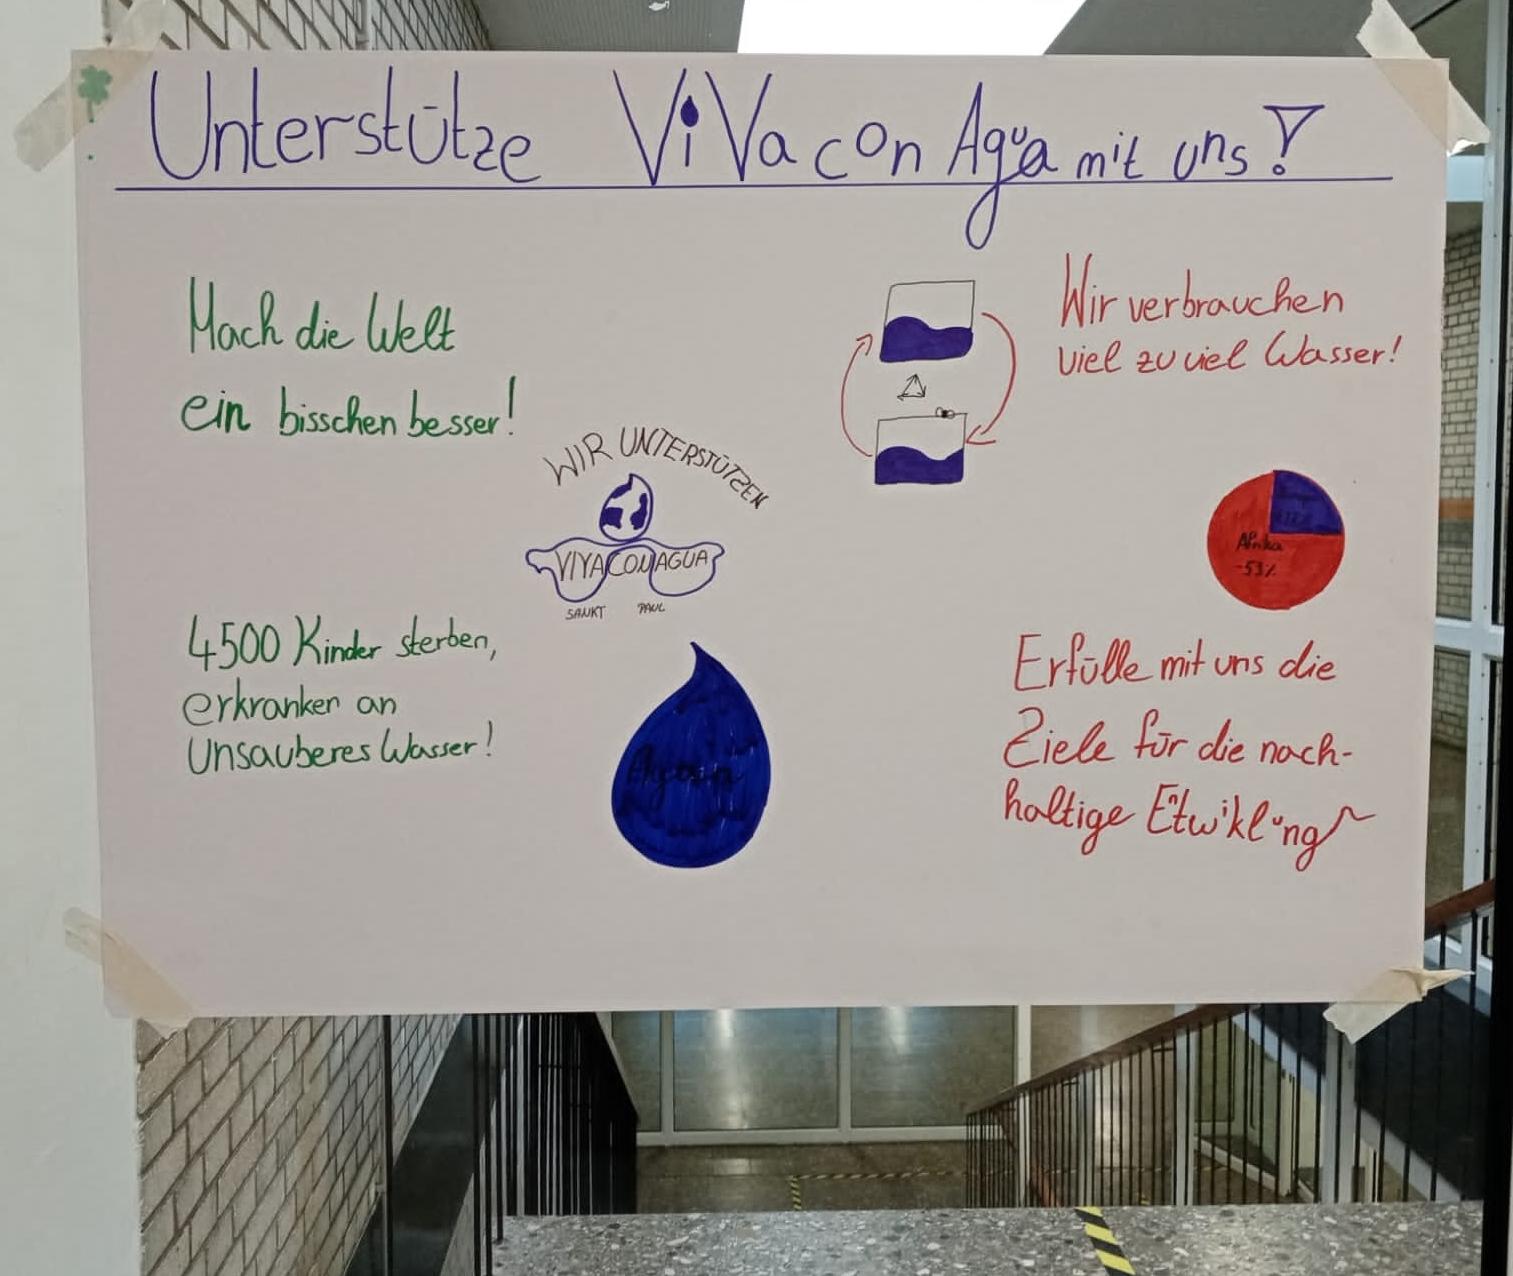 Unterstütze ViVa con Agua mit uns!
Mach die Welt
ein bisschen besser!
Wir verbrauchen
viel zu viel Wasser!
WIR UNTERSTÜTZEN
VIVA CON AGUA
SANKT PAUL
Afrika
-53%
4500 Kinder sterben,
erkranken an
Unsauberes Wasser!
Erfülle mit uns die
Ziele für die nach-
haltige Entwiklung